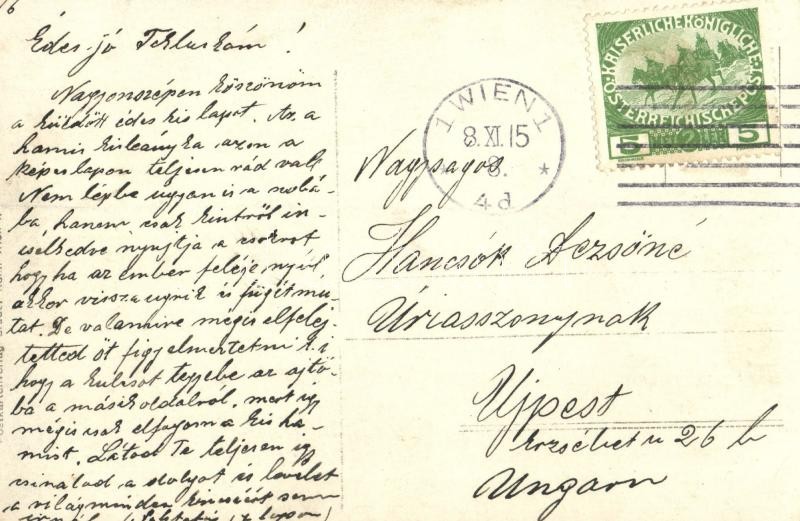 Édes jó Tekluskám!
Nagyonszépen köszönöm
a küldött édes kis lapot. Az a
hamis kisleányka azon a
képeslapon teljesen rád vall.
Nem lépbe ugyan is a szobá-
ba, hanem csak kintről in-
cselkedve nyujtja a csokrot
hogy ha az ember feléje nyúl,
akkor vissza ugrik és fügét mu-
tat. De valamire mégis elfelej-
tetted őt figyelmeztetni t. i
hogy a kulcsot tegyebe az ajtó-
ba a másik oldalról, mert így
mégis csak elfogom a kis ha-
mist. Látod Te teljesen így
csinálod a dolgot és levelet
a világ minden kincséért sem
WIEN 1
8. XI. 15
8.
4d
KAISERLICHE KÖNIGLICHE
ÖSTERREICHISCHE POST
5 5
Nagyságos
Hancsók Dezsőné
Úriasszonynak
Ujpest
Erzsébet u 26 b
Ungarn